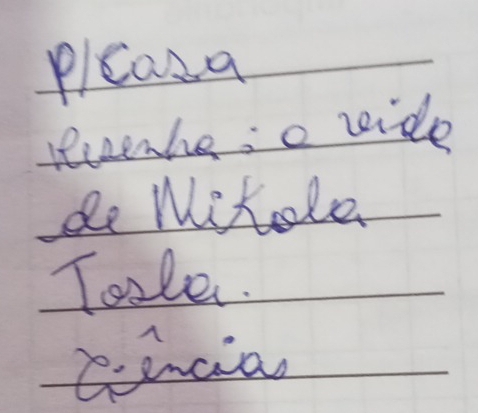 P/ Casa
Resenha: a vida
de Nikola
Tesla.
Ciências